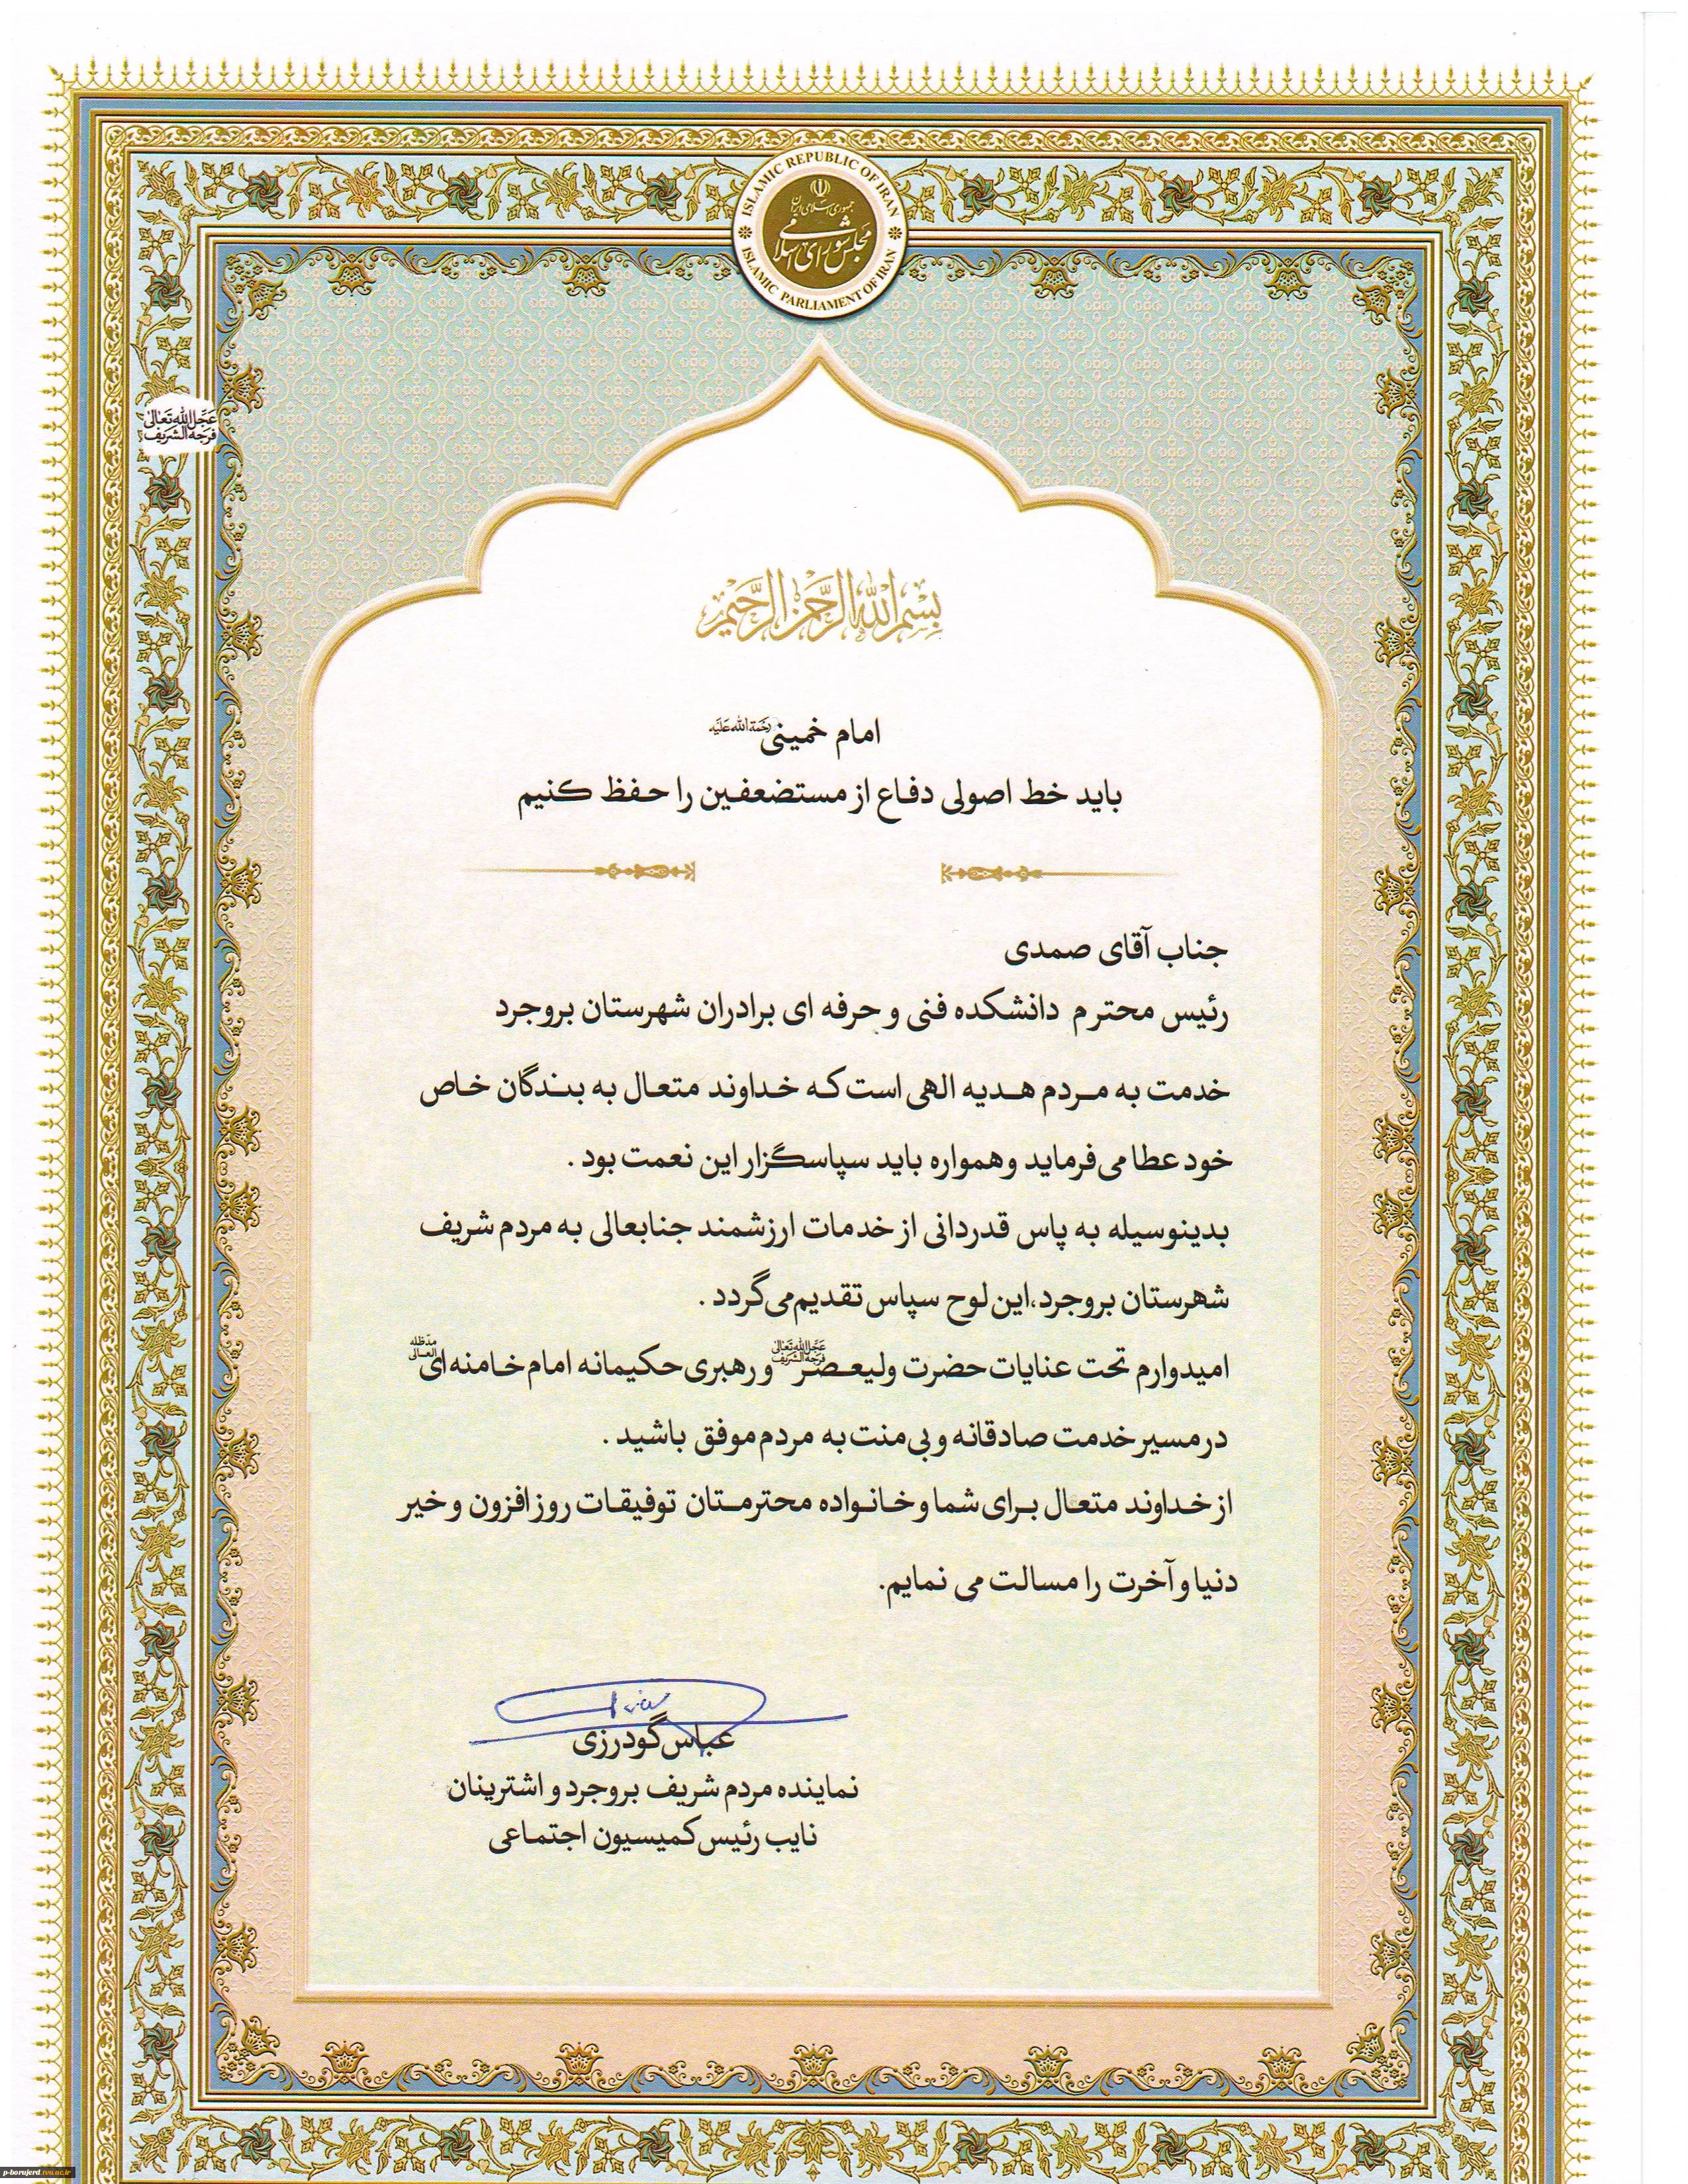 ISLAMIC REPUBLIC OF IRAN
جمهوری اسلامی ایران
مجلس شورای اسلامی
ISLAMIC PARLIAMENT OF IRAN
عَجَّلَ اللهُ تَعَالیٰ
فَرَجَهُ الشَّرِیف
بسم الله الرحمن الرحیم
امام خمینی رَحْمَةُ اللهِ عَلَیْه
باید خط اصولی دفاع از مستضعفین را حفظ کنیم
جناب آقای صمدی
رئیس محترم دانشکده فنی و حرفه ای برادران شهرستان بروجرد
خدمت به مردم هدیه الهی است که خداوند متعال به بندگان خاص
خود عطا می فرماید و همواره باید سپاسگزار این نعمت بود .
بدینوسیله به پاس قدردانی از خدمات ارزشمند جنابعالی به مردم شریف
شهرستان بروجرد،این لوح سپاس تقدیم می گردد .
امیدوارم تحت عنایات حضرت ولیعصر عَجَّلَ اللهُ تَعَالیٰ فَرَجَهُ الشَّرِیف و رهبری حکیمانه امام خامنه ای مدّظله العالی
در مسیر خدمت صادقانه و بی منت به مردم موفق باشید .
از خداوند متعال برای شما و خانواده محترمتان توفیقات روز افزون و خیر
دنیا و آخرت را مسالت می نمایم.
عباس گودرزی
نماینده مردم شریف بروجرد و اشترینان
نایب رئیس کمیسیون اجتماعی
p-borujerd.tvu.ac.ir